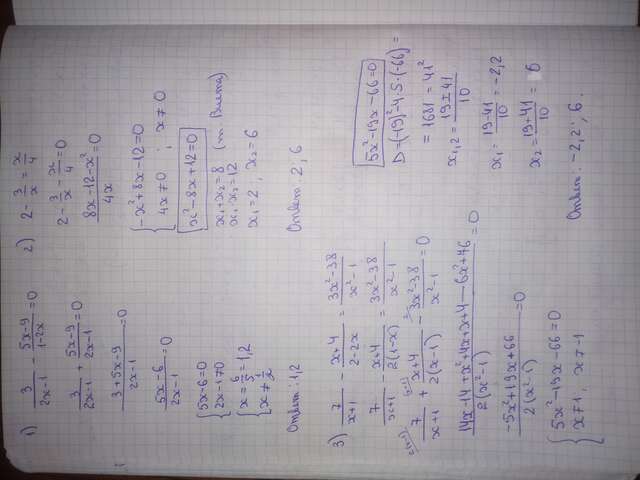 1) 3/(2x-1) - (5x-9)/(1-2x) = 0
3/(2x-1) + (5x-9)/(2x-1) = 0
(3+5x-9)/(2x-1) = 0
(5x-6)/(2x-1) = 0
{5x-6=0
{2x-1≠0
{x = 6/5 = 1,2
{x ≠ 1/2
Ответ: 1,2
2) 2 - 3/x = x/4
2 - 3/x - x/4 = 0
(8x-12-x²)/4x = 0
{-x²+8x-12=0
{4x≠0 ; x≠0
x²-8x+12=0
x₁+x₂=8
x₁·x₂=12 (т. Виета)
x₁=2 , x₂=6
Ответ: 2; 6
3) 7/(x+1) - (x+4)/(2-2x) = (3x²-38)/(x²-1)
7/(x+1) - (x+4)/(2(1-x)) = (3x²-38)/(x²-1)
7/(x+1) + (x+4)/(2(x-1)) - (3x²-38)/(x²-1) = 0
(14x-14+x²+4x+x+4-6x²+76)/(2(x²-1)) = 0
(-5x²+19x+66)/(2(x²-1)) = 0
{5x²-19x-66=0
{x≠1, x≠-1
5x²-19x-66=0
D=(-19)²-4·5·(-66)=
=1681=41²
x₁,₂ = (19±41)/10
x₁ = (19-41)/10 = -2,2
x₂ = (19+41)/10 = 6
Ответ: -2,2; 6.